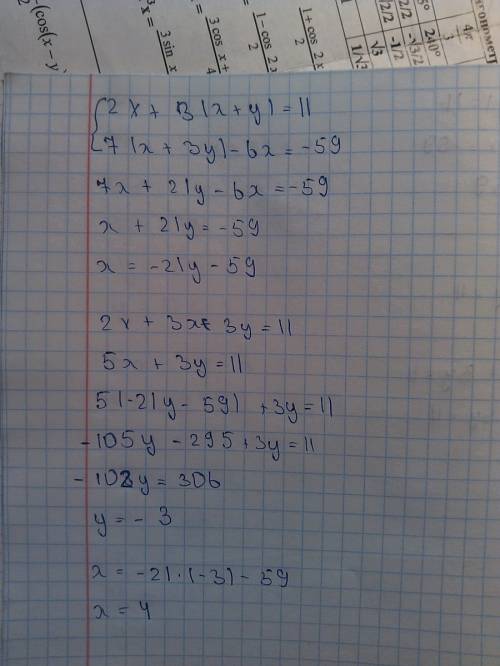 (cos(x-y)
³x = 3 sin x
3 cos x +
4
= 1-cos 2x
2
1+cos 2x
2
4π
3
240°
-√3/2
-1/2
√3
1/√3
{ 2x + 3(x+y) = 11
7(x + 3y) - 6x = -59
7x + 21y - 6x = -59
x + 21y = -59
x = -21y - 59
2x + 3x + 3y = 11
5x + 3y = 11
5(-21y - 59) + 3y = 11
-105y - 295 + 3y = 11
-102y = 306
y = - 3
x = -21·(-3) - 59
x = 4